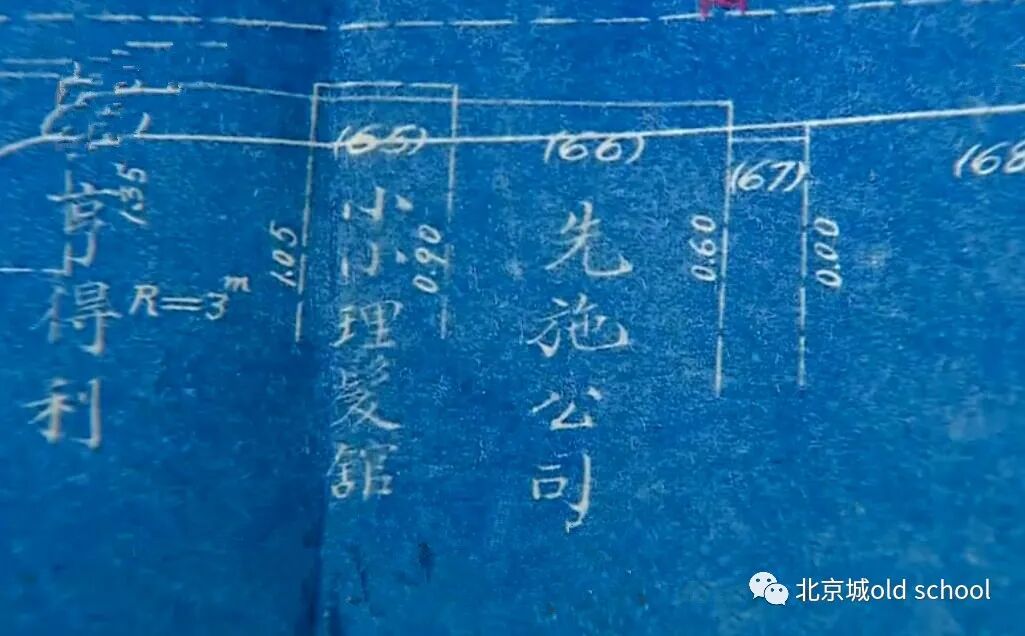 (65)
(66)
(67)
(68
亨得利
1.35
R=3m
1.05
小小理髮館
0.90
先施公司
0.60
0.00
北京城old school